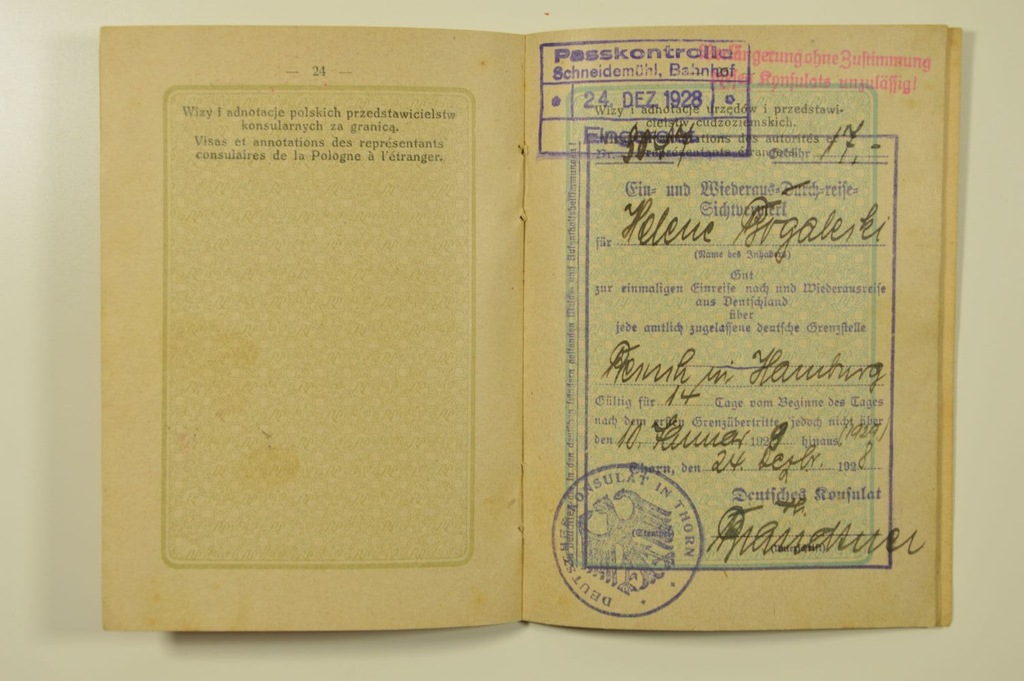 — 24 —
Wizy i adnotacje polskich przedstawicielstw
konsularnych za granicą.
Visas et annotations des représentants
consulaires de la Pologne à l'étranger.
Passkontrolle
Schneidemühl, Bahnhof
* 24. DEZ. 1928 *
Verlängerung ohne Zustimmung
des Konsulats unzulässig!
Wizy i adnotacje urzędów i przedstawi-
cielstw cudzoziemskich.
annotations des autorités
représentants étrangers
Nr. Gebühr 17,-
Ein- und Wiederaus-Durch-reise-
Sichtvermerk
für Helene Rogaleski
(Name des Inhabers)
Gut
zur einmaligen Einreise nach und Wiederausreise
aus Deutschland
über
jede amtlich zugelassene deutsche Grenzstelle
Besuch in Hamburg
Gültig für 14 Tage vom Beginne des Tages
nach dem ersten Grenzübertritte, jedoch nicht über
den 10. Januar 1929 hinaus (1929)
Thorn, den 24. Dezbr. 1928
Deutsches Konsulat
(Stempel)
DEUTSCHES KONSULAT IN THORN